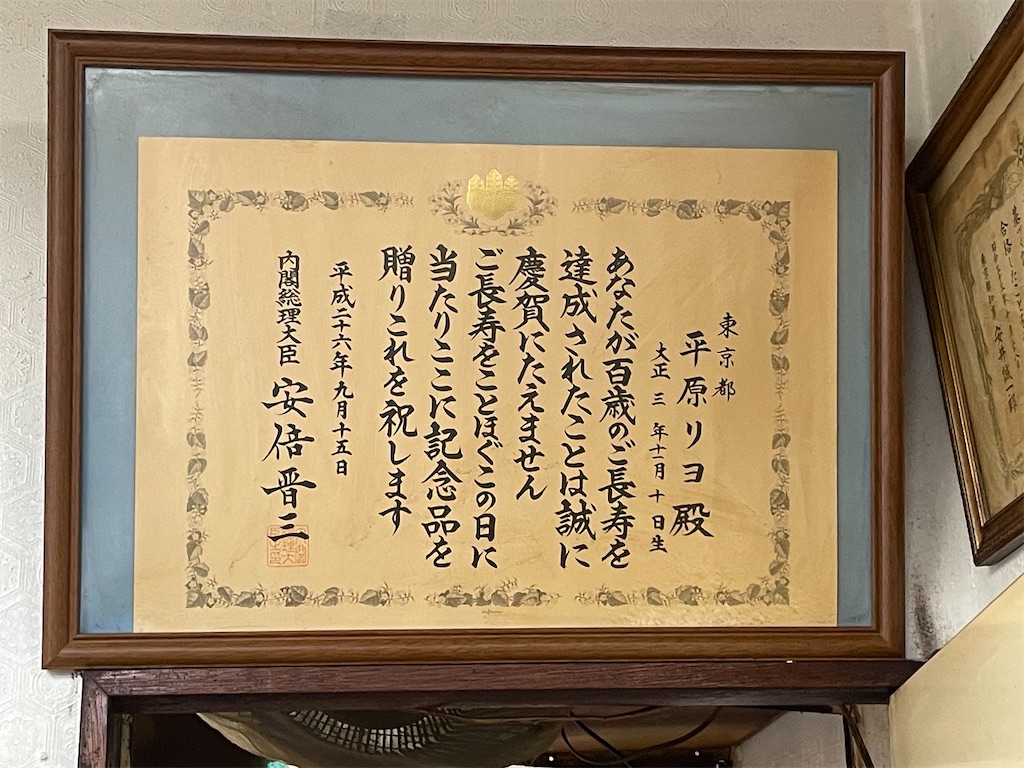 東京都
平原リヨ殿
大正三年十二月十日生
あなたが百歳のご長寿を
達成されたことは誠に
慶賀にたえません
ご長寿をことほぐこの日に
当たりここに記念品を
贈りこれを祝します
平成二十六年九月十五日
内閣総理大臣 安倍晋三